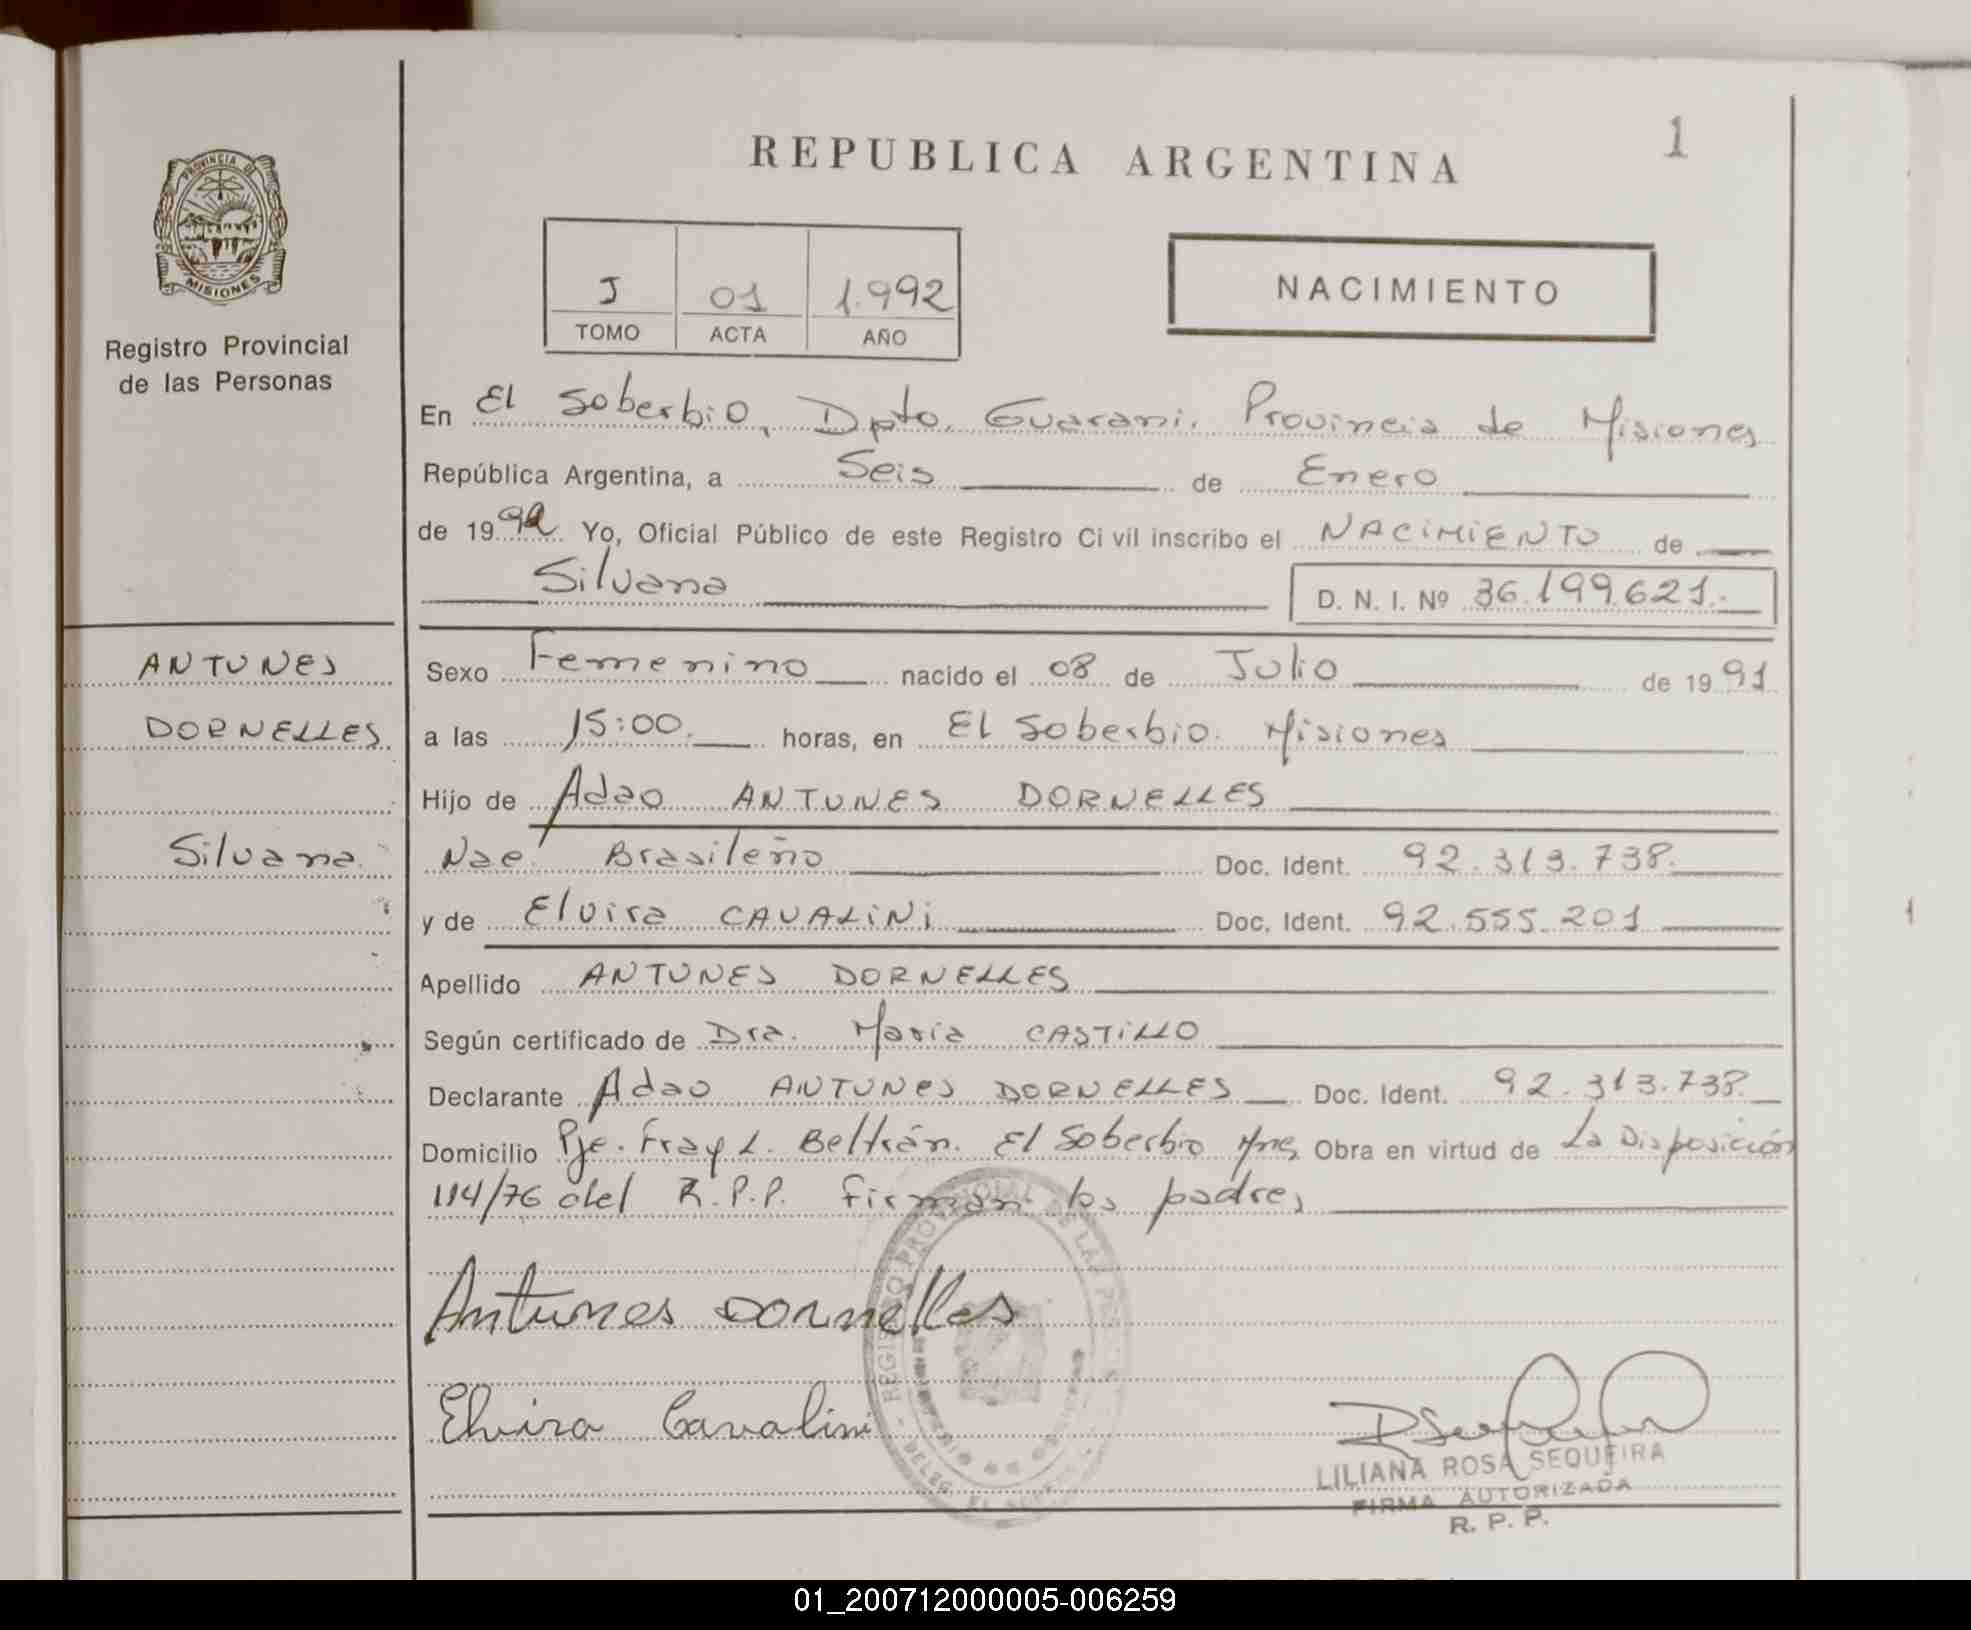 REPUBLICA ARGENTINA
1
PROVINCIA DE
MISIONES
Registro Provincial
de las Personas
J 01 1.992
TOMO ACTA AÑO
NACIMIENTO
En El Soberbio, Dpto. Guarani. Provincia de Misiones
República Argentina, a Seis de Enero
de 1992 Yo, Oficial Público de este Registro Civil inscribo el NACIMIENTO de
Silvana D. N. I. Nº 36.199.621.-
ANTUNES
DORNELLES
Silvana
Sexo Femenino nacido el 08 de Julio de 1991
a las 15:00. horas, en El Soberbio. Misiones
Hijo de Adao ANTUNES DORNELLES
Nac. Brasileño Doc. Ident. 92.313.738.
y de Elvira CAVALINI Doc. Ident. 92.555.201
Apellido ANTUNES DORNELLES
Según certificado de Dra. Maria CASTILLO
Declarante Adao ANTUNES DORNELLES Doc. Ident. 92.313.738.
Domicilio Pje. Fray L. Beltrán. El Soberbio Mnes Obra en virtud de La Disposición
114/76 del R.P.P. Firman los padres
Antunes Dornelles
Elvira Cavalini
LILIANA ROSA SEQUEIRA
FIRMA AUTORIZADA
R. P. P.
01_200712000005-006259